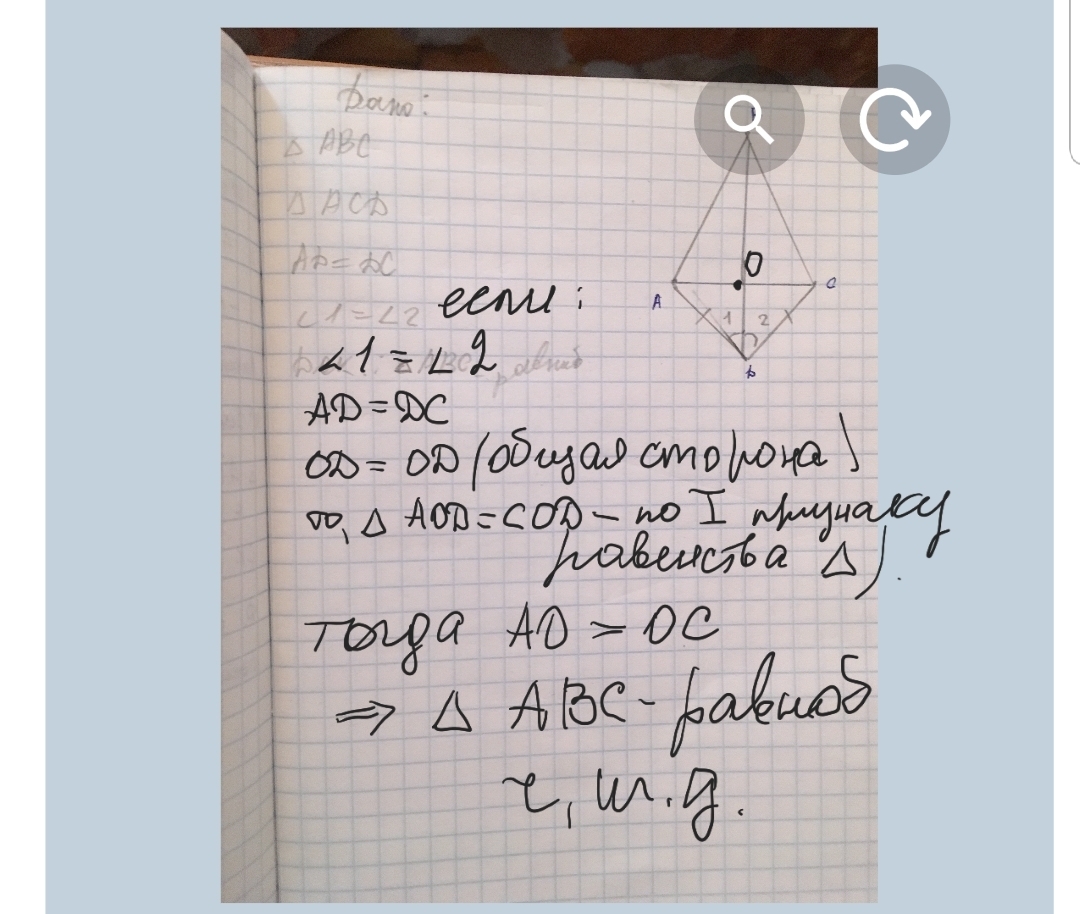 Дано:
△ ABC
△ ACD
AD = DC
∠1 = ∠2
△ABC - равноб
A
O
C
1 2
D
если:
∠1 = ∠2
AD = DC
OD = OD (общая сторона)
то, △ AOD = COD – по I признаку
равенства △).
тогда AO = OC
⇒ △ ABC - равноб
ч, т.д.